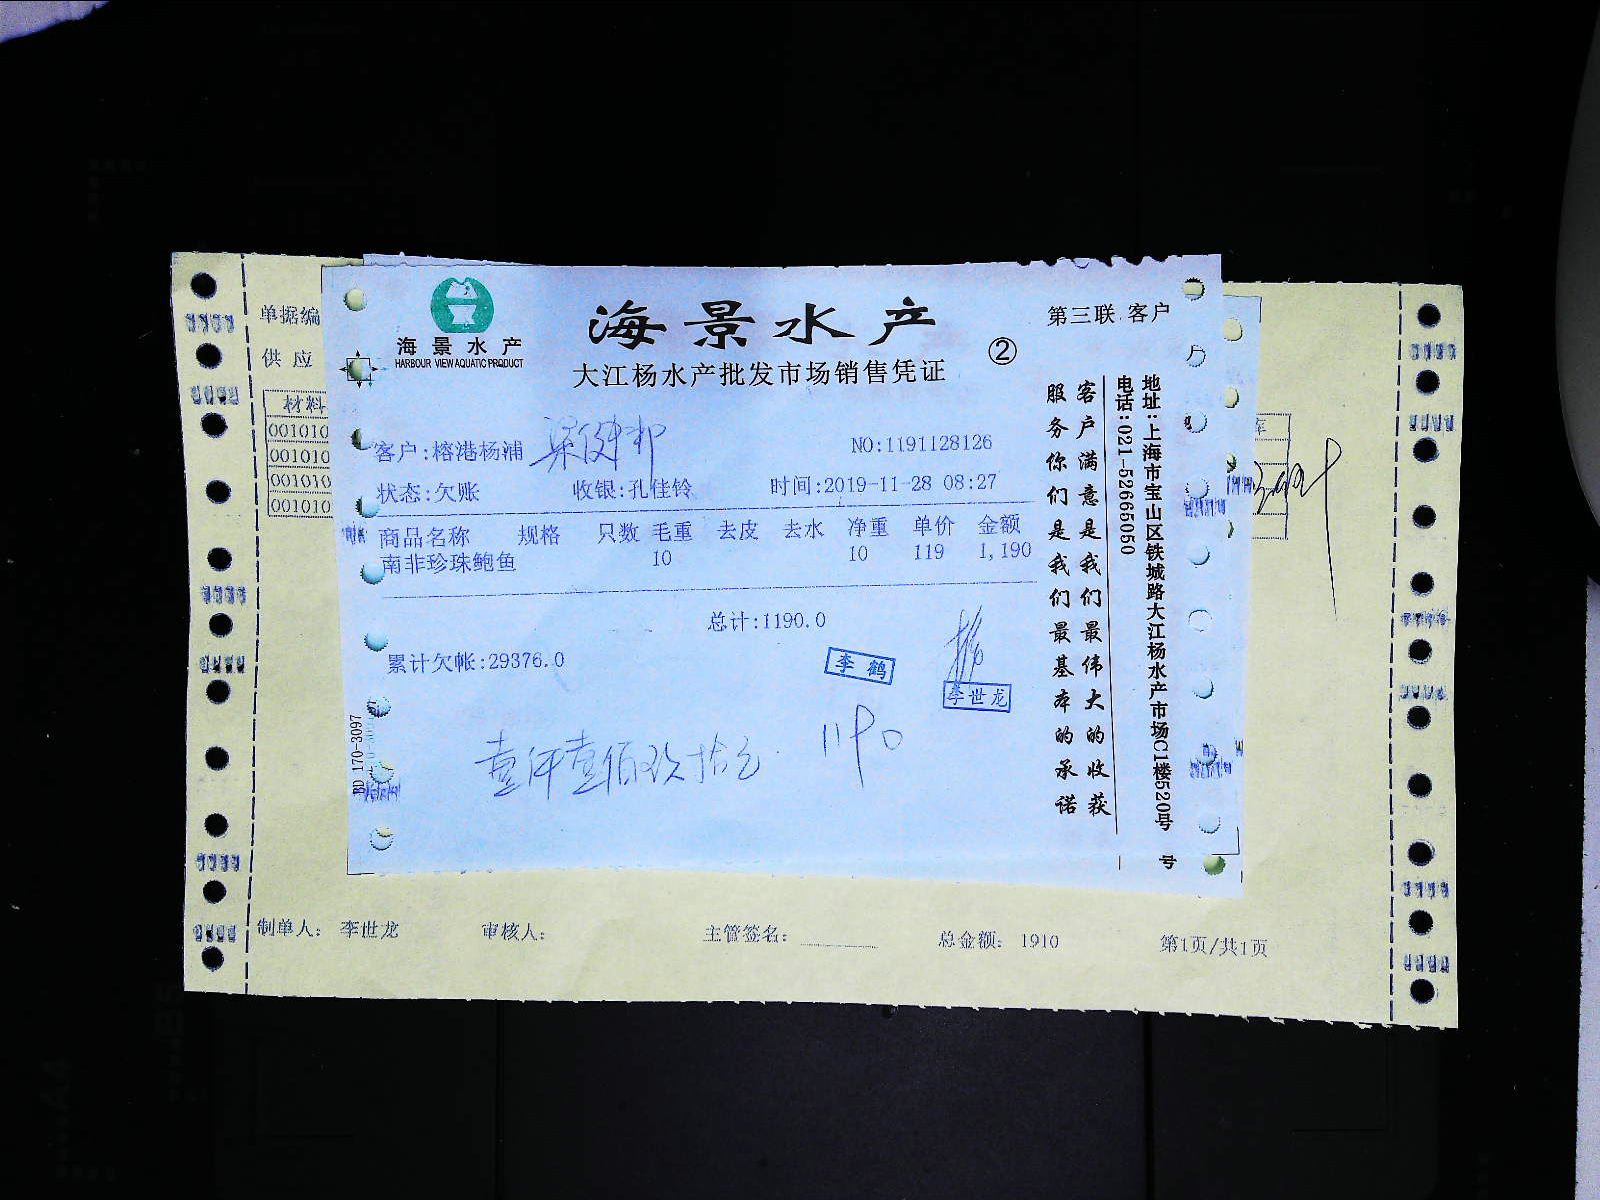 海景水产
HARBOUR VIEW AQUATIC PRODUCT
海景水产
大江杨水产批发市场销售凭证
②
第三联 客户
客户:榕港杨浦
NO:1191128126
状态:欠账 收银:孔佳铃 时间:2019-11-28 08:27
商品名称 规格 只数 毛重 去皮 去水 净重 单价 金额
南非珍珠鲍鱼 10 10 119 1,190
总计:1190.0
累计欠帐:29376.0
李鹤
李世龙
壹仟壹佰玖拾元 1190
BD 170-3097
客户满意是我们最伟大的收获
服务你们是我们最基本的承诺
地址:上海市宝山区铁城路大江杨水产市场C1楼520号
电话:021-52665050
号
单据编
供应
材料
001010
001010
001010
001010
库
制单人: 李世龙 审核人: 主管签名: 总金额: 1910 第1页/共1页